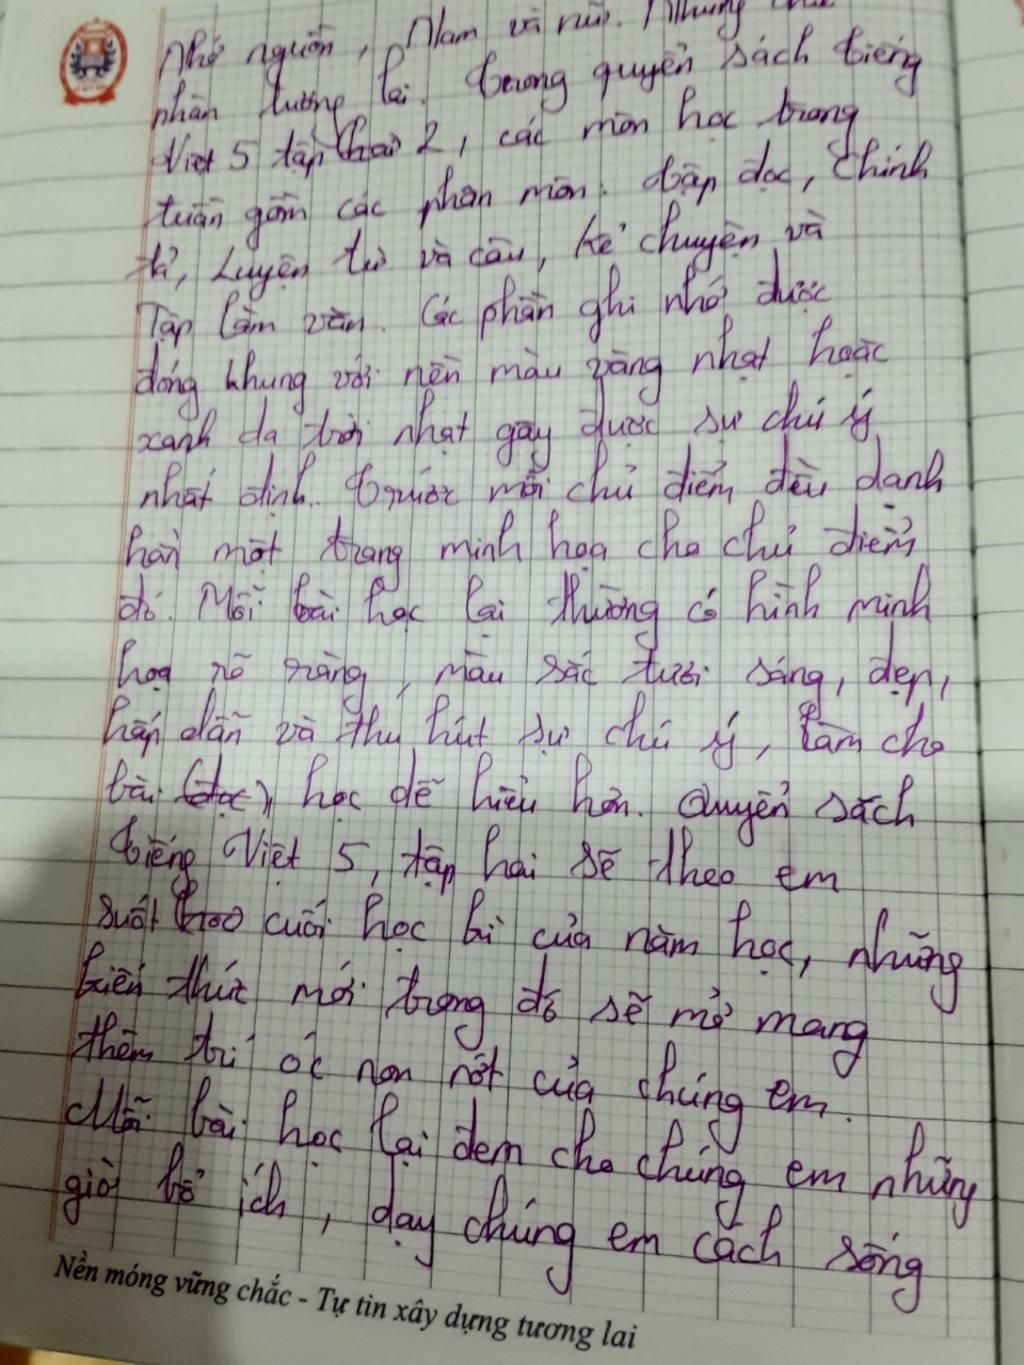 Nhớ nguồn, Nam và nữ. Những
nhân tương lai. Trong quyển sách tiếng
Việt 5 tập hai 2, các môn học trong
tuần gồm các phân môn: Tập đọc, Chính
tả, Luyện từ và câu, kể chuyện và
Tập làm văn. Các phần ghi nhớ được
đóng khung với nền màu vàng nhạt hoặc
xanh da trời nhạt gây được sự chú ý
nhất định. Trước mỗi chủ điểm đều danh
hẳn một trang minh họa cho chủ điểm
đó. Mỗi bài học lại thường có hình minh
họa rõ ràng, màu sắc tươi sáng, đẹp,
hấp dẫn và thu hút sự chú ý, làm cho
bài (đọc), học dễ hiểu hơn. Quyển sách
tiếng Việt 5, tập hai sẽ theo em
suốt cuối học kì của năm học, những
kiến thức mới trong đó sẽ mở mang
thêm trí óc non nớt của chúng em.
Mỗi bài học lại đem cho chúng em những
giờ bổ ích, dạy chúng em cách sống
Nền móng vững chắc - Tự tin xây dựng tương lai